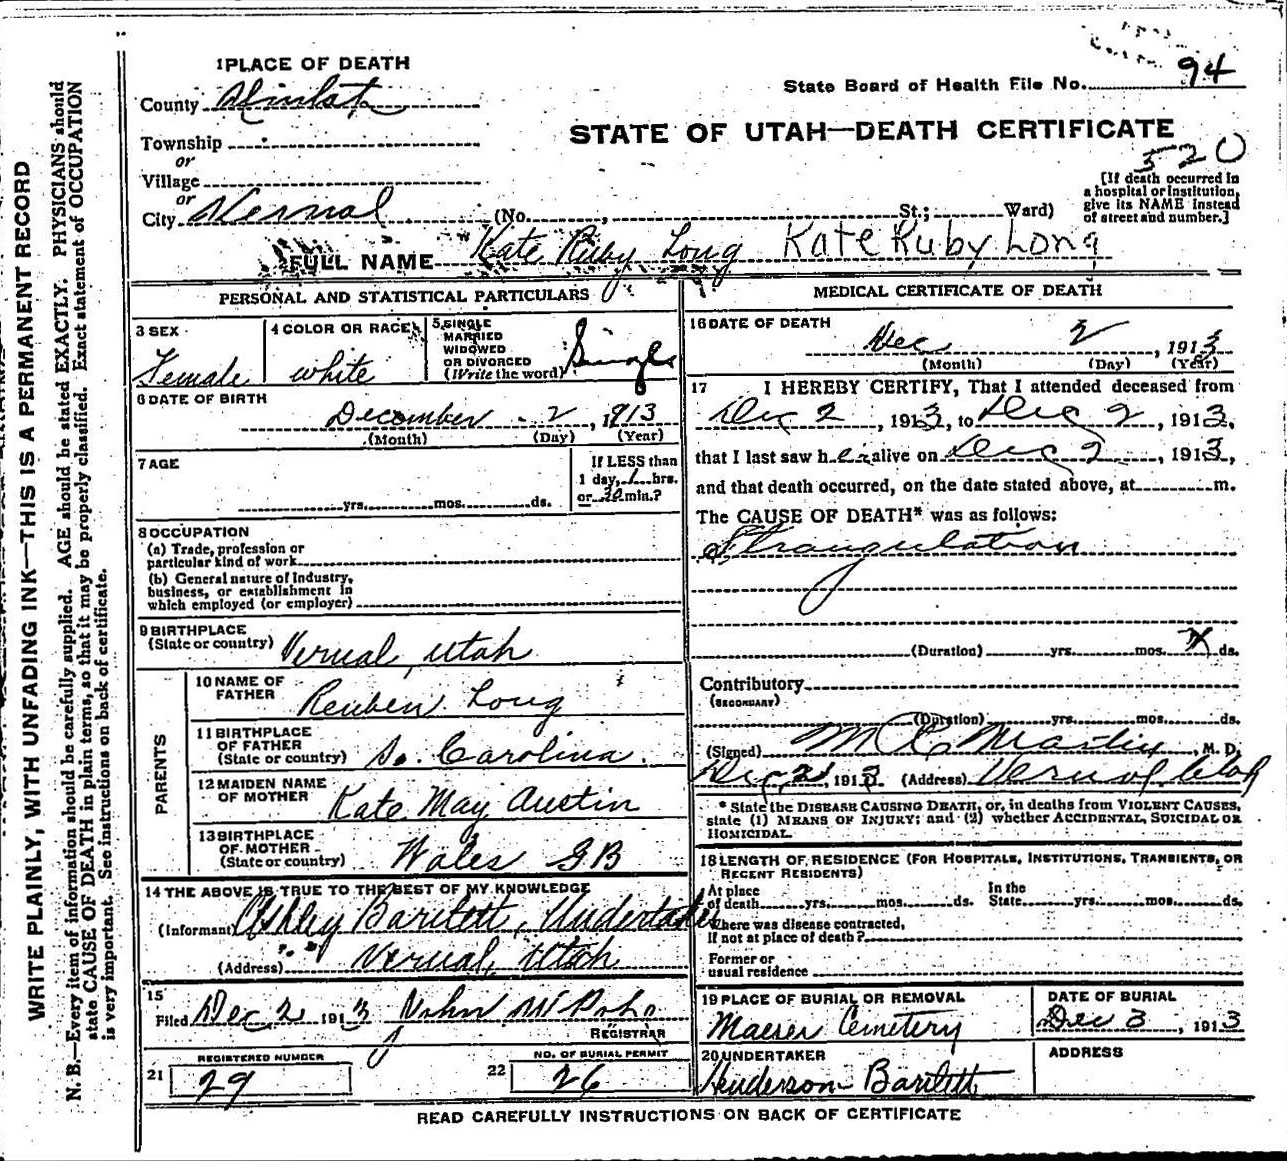 1 PLACE OF DEATH
County Uintah
Township
or
Village
or
City Vernal (No. , St.; Ward)
State Board of Health File No. 94
STATE OF UTAH—DEATH CERTIFICATE
520
[If death occurred in
a hospital or institution,
give its NAME instead
of street and number.]
FULL NAME Kate Ruby Long Kate Ruby Long
PERSONAL AND STATISTICAL PARTICULARS
3 SEX
Female
4 COLOR OR RACE
white
5 SINGLE
MARRIED
WIDOWED
OR DIVORCED
(Write the word) Single
6 DATE OF BIRTH
December 2, 1913
(Month) (Day) (Year)
7 AGE
yrs. mos. ds.
If LESS than
1 day, 1 hrs.
or 30 min.?
8 OCCUPATION
(a) Trade, profession or
particular kind of work
(b) General nature of Industry,
business, or establishment in
which employed (or employer)
9 BIRTHPLACE
(State or country) Vernal, Utah
PARENTS
10 NAME OF
FATHER Reuben Long
11 BIRTHPLACE
OF FATHER
(State or country) So. Carolina.
12 MAIDEN NAME
OF MOTHER Kate May Austin
13 BIRTHPLACE
OF MOTHER
(State or country) Wales G B
14 THE ABOVE IS TRUE TO THE BEST OF MY KNOWLEDGE
(Informant) Ashley Bartlett, Undertaker
(Address) Vernal, Utah
15
Filed Dec 2 1913 John
REGISTRAR
REGISTERED NUMBER
21 29
NO. OF BURIAL PERMIT
22 26
MEDICAL CERTIFICATE OF DEATH
16 DATE OF DEATH
Dec 2, 1913
(Month) (Day) (Year)
17 I HEREBY CERTIFY, That I attended deceased from
Dec 2, 1913, to Dec 2, 1913,
that I last saw her alive on Dec 2, 1913,
and that death occurred, on the date stated above, at m.
The CAUSE OF DEATH* was as follows:
Strangulation
(Duration) yrs. mos. ds.
Contributory
(SECONDARY)
(Duration) yrs. mos. ds.
(Signed) M C Martin, M. D.
Dec 2, 1913 (Address) Vernal Utah
* State the DISEASE CAUSING DEATH, or, in deaths from VIOLENT CAUSES,
state (1) MEANS OF INJURY; and (2) whether ACCIDENTAL, SUICIDAL OR
HOMICIDAL.
18 LENGTH OF RESIDENCE (FOR HOSPITALS, INSTITUTIONS, TRANSIENTS, OR
RECENT RESIDENTS)
At place
of death yrs. mos. ds.
In the
State yrs. mos. ds.
Where was disease contracted,
If not at place of death?
Former or
usual residence
19 PLACE OF BURIAL OR REMOVAL
Maeser Cemetery
DATE OF BURIAL
Dec 3, 1913
20 UNDERTAKER
Henderson Bartlett
ADDRESS
READ CAREFULLY INSTRUCTIONS ON BACK OF CERTIFICATE
WRITE PLAINLY, WITH UNFADING INK—THIS IS A PERMANENT RECORD
N. B.—Every item of information should be carefully supplied. AGE should be stated EXACTLY. PHYSICIANS should
state CAUSE OF DEATH in plain terms, so that it may be properly classified. Exact statement of OCCUPATION
is very important. See instructions on back of certificate.